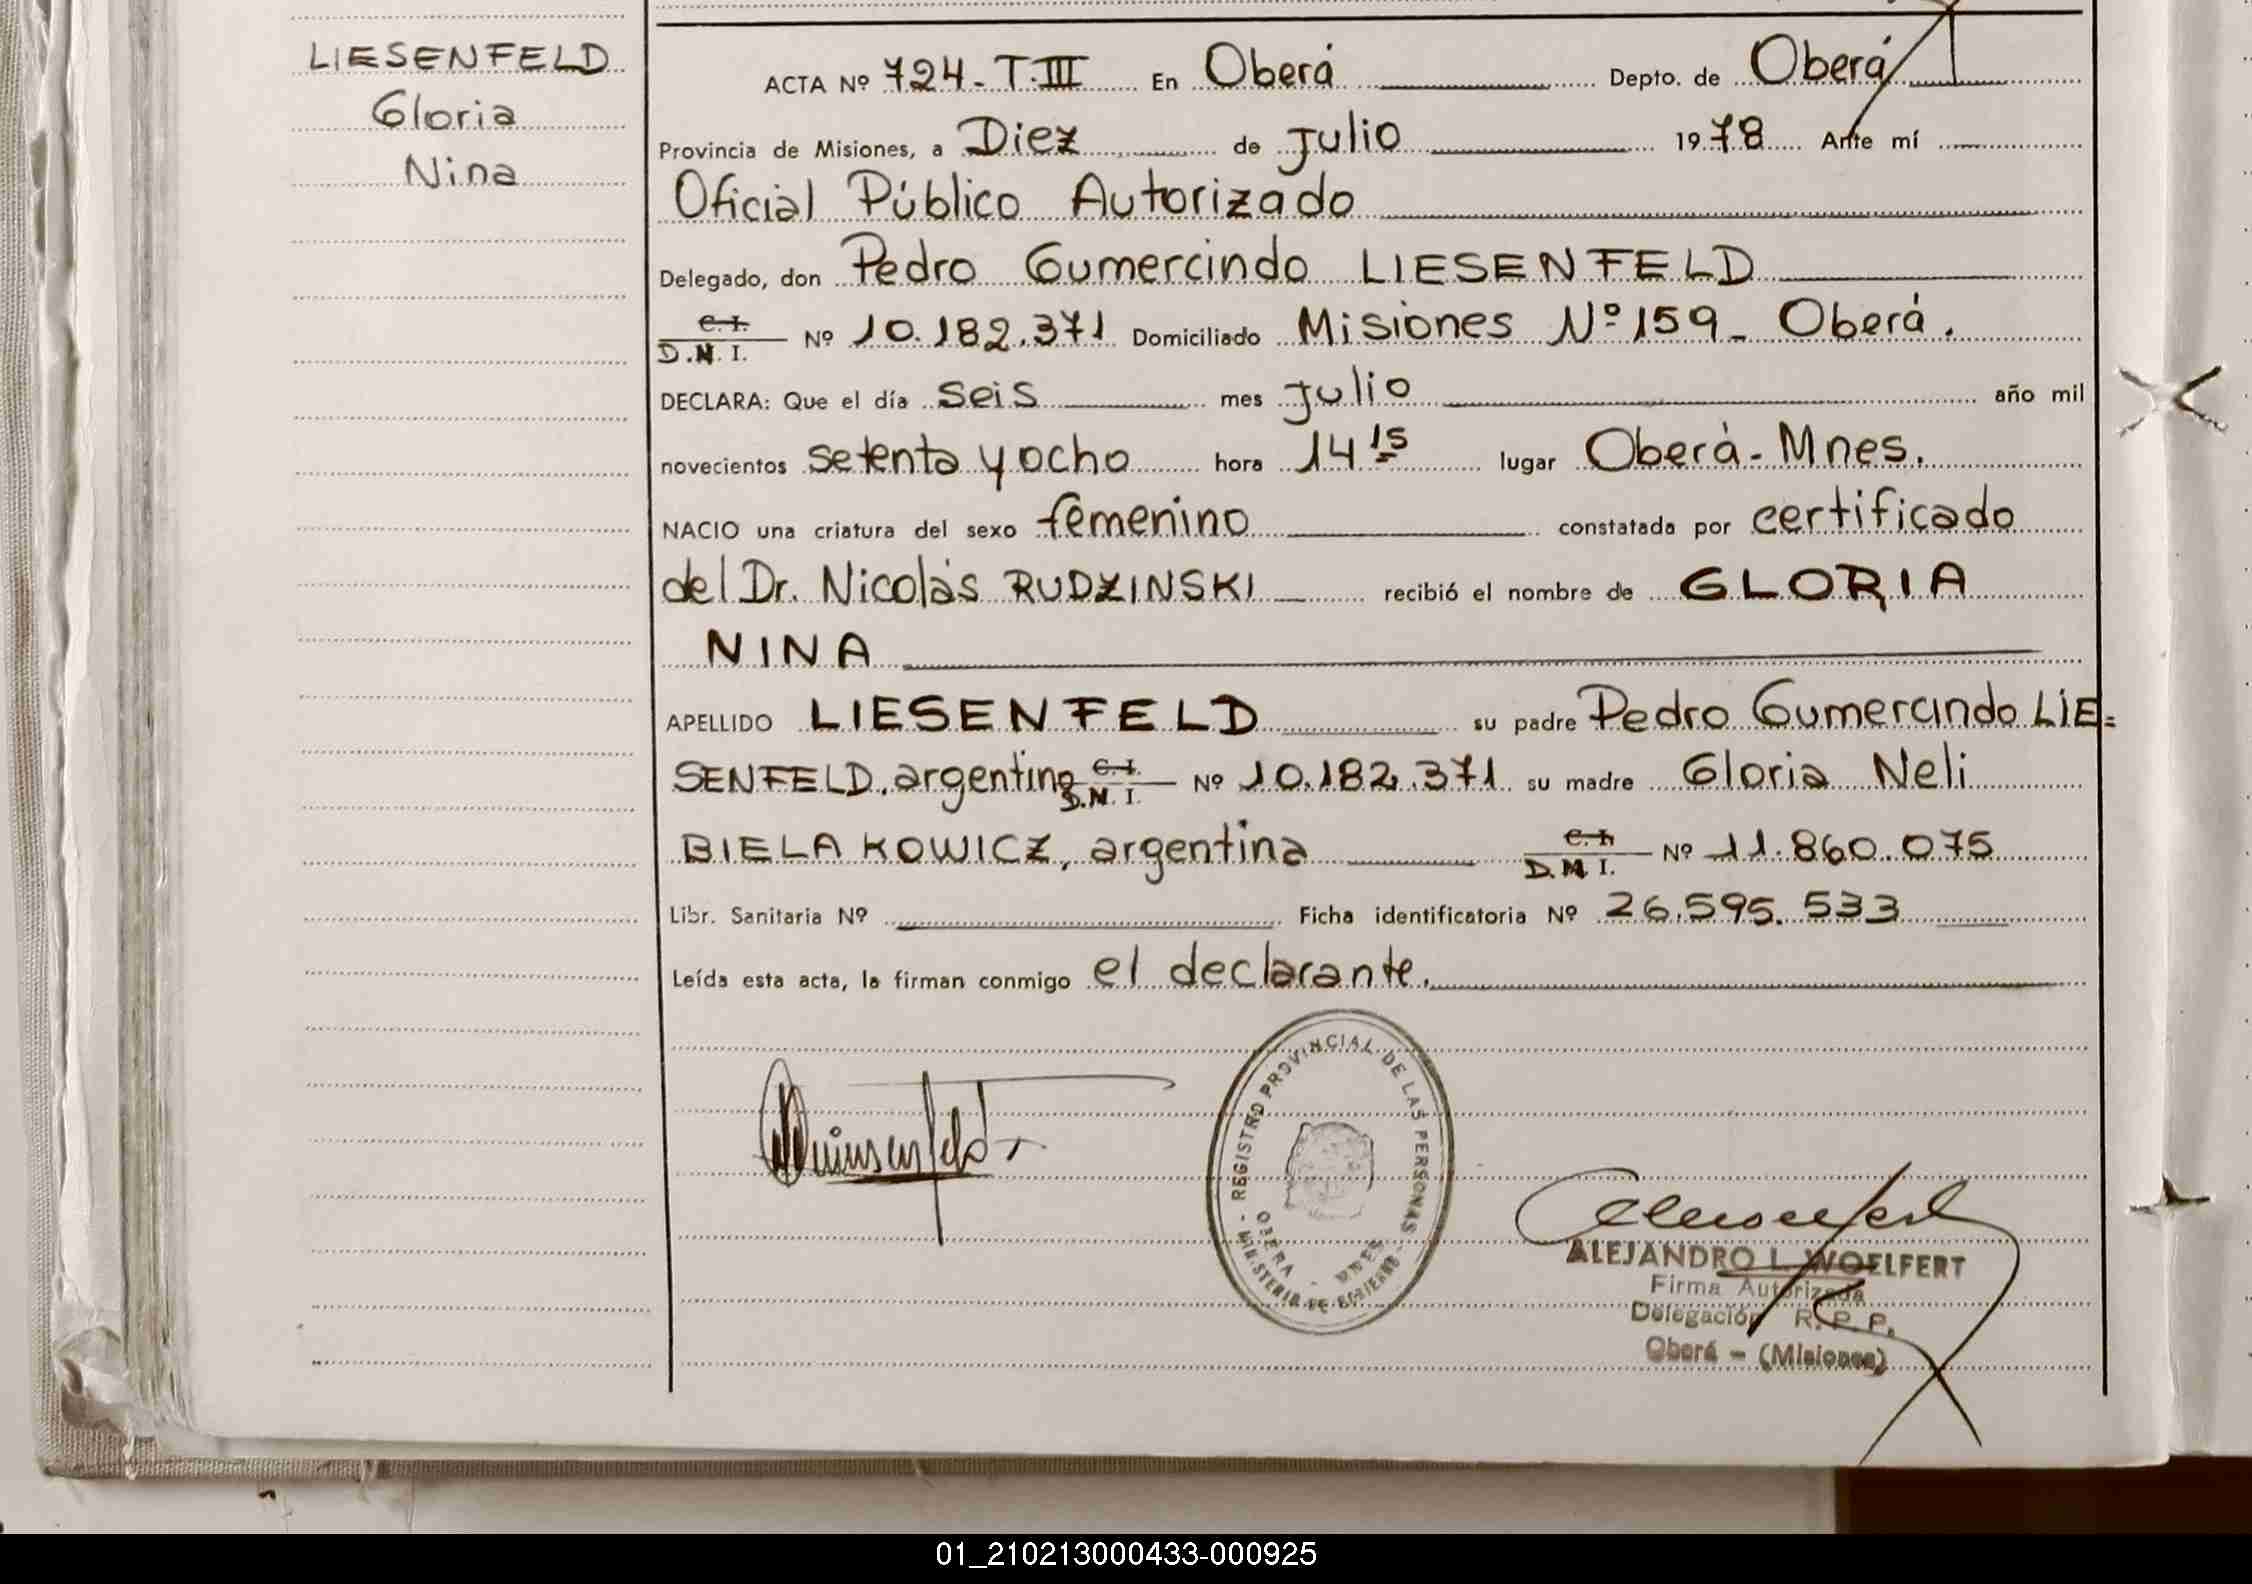 LIESENFELD
Gloria
Nina
ACTA Nº 724 - T.III En Oberá Depto. de Oberá
Provincia de Misiones, a Diez de Julio 1978 Ante mí
Oficial Público Autorizado
Delegado, don Pedro Gumercindo LIESENFELD
C. I.
D.N. I. Nº 10.182.371 Domiciliado Misiones Nº 159 - Oberá.
DECLARA: Que el día seis mes Julio año mil
novecientos setenta y ocho hora 14 15 lugar Oberá - Mnes.
NACIO una criatura del sexo femenino constatada por certificado
del Dr. Nicolás RUDZINSKI recibió el nombre de GLORIA
NINA
APELLIDO LIESENFELD su padre Pedro Gumercindo LIE=
SENFELD, argentino C. I. D.N. I. Nº 10.182.371 su madre Gloria Neli
BIELAKOWICZ, argentina C. I. D.N. I. Nº 11.860.075
Libr. Sanitaria Nº Ficha identificatoria Nº 26.595.533
Leída esta acta, la firman conmigo el declarante.
- REGISTRO PROVINCIAL DE LAS PERSONAS -
MINISTERIO DE GOBIERNO
OBERA - MNES
ALEJANDRO L. WOELFERT
Firma Autorizada
Delegación R. P. P.
Oberá - (Misiones)
01_210213000433-000925